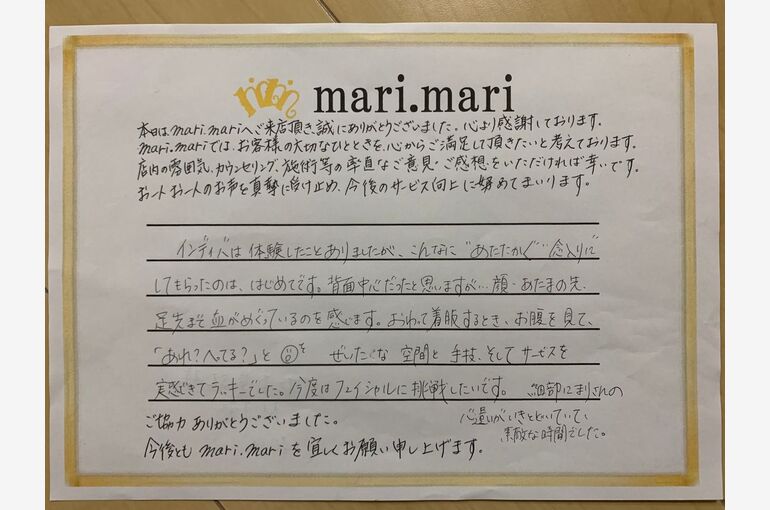 mari.mari
本日は、mari.mariへご来店頂き、誠にありがとうございました。心より感謝しております。
mari.mariでは、お客様の大切なひとときを、心からご満足して頂きたいと考えております。
店内の雰囲気、カウンセリング、施術等の率直なご意見・ご感想をいただければ幸いです。
お一人お一人のお声を真摯に受け止め、今後のサービス向上に努めてまいります。
インディバは体験したことありましたが、こんなに"あたたかく""念入りに
してもらったのは、はじめてです。背面中心だったと思いますが…顔・あたまの先、
足先まで血がめぐっているのを感じます。おわって着服するとき、お腹を見て、
「あれ?へってる?」と ぜいたくな 空間と 手技、そしてサービスを
実感できてラッキーでした。今度はフェイシャルに挑戦したいです。 細部にまりさんの
心遣いがいきとどいていて、
素敵な時間でした。
ご協力ありがとうございました。
今後とも mari.mari を宜しくお願い申し上げます。